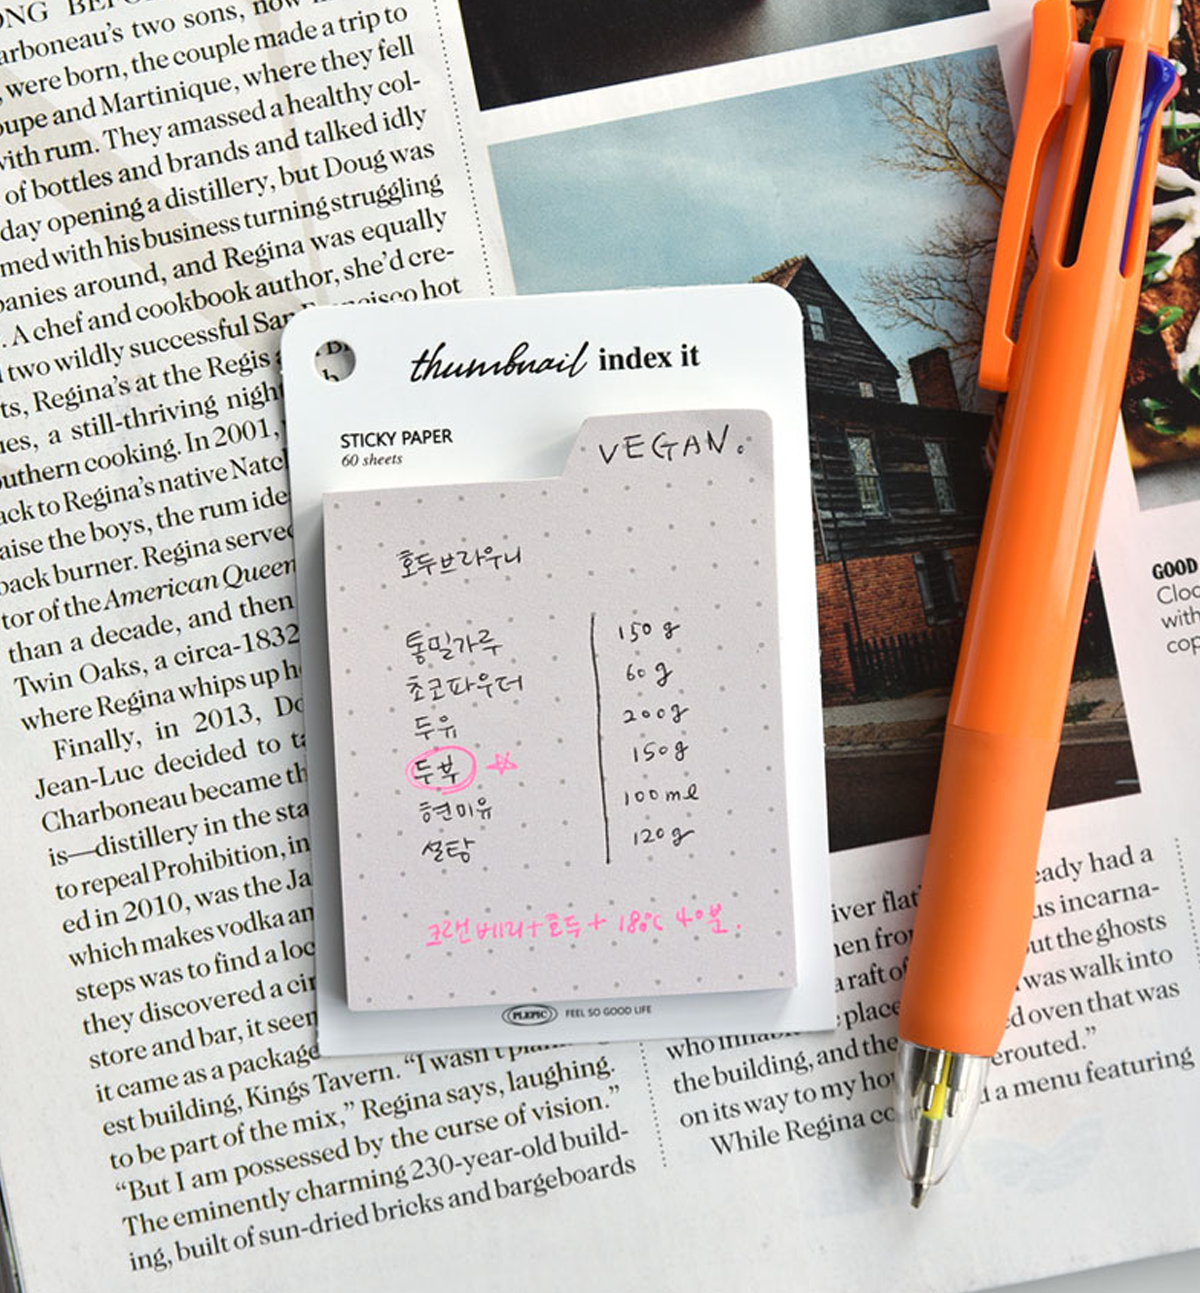 ONG BEFO
arboneau's two sons, now
were born, the couple made a trip to
oupe and Martinique, where they fell
with rum. They amassed a healthy col-
of bottles and brands and talked idly
day opening a distillery, but Doug was
med with his business turning struggling
panies around, and Regina was equally
. A chef and cookbook author, she'd cre-
two wildly successful San Francisco hot
ts, Regina's at the Regis
ues, a still-thriving night
outhern cooking. In 2001,
ack to Regina's native Natch
aise the boys, the rum ide
back burner. Regina served
tor of the American Queen
than a decade, and then
Twin Oaks, a circa-1832
where Regina whips up h
Finally, in 2013, Do
Jean-Luc decided to ta
Charboneau became th
is—distillery in the sta
to repeal Prohibition, in
ed in 2010, was the Ja
which makes vodka an
steps was to find a loc
they discovered a cir
store and bar, it seem
it came as a package
est building, Kings Tavern. "I wasn't
to be part of the mix," Regina says, laughing.
"But I am possessed by the curse of vision."
The eminently charming 230-year-old build-
ing, built of sun-dried bricks and bargeboards
thumbnail index it
STICKY PAPER
60 sheets
VEGAN.
호두브라우니
통밀가루 150g
초코파우더 60g
두유 200g
두부 150g
현미유 100ml
설탕 120g
크랜베리+호두+180℃ 40분.
PLEPIC FEEL SO GOOD LIFE
GOOD
Cloc
with
cop
eady had a
iver flat us incarna-
hen fro out the ghosts
a raft of was walk into
place d oven that was
who inha
the building, and the erouted."
on its way to my ho d a menu featuring
While Regina co